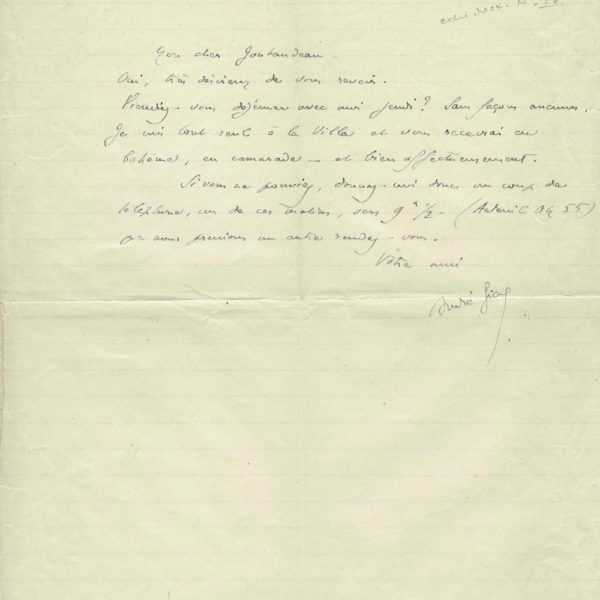 Mon cher Jouhandeau
Oui, très désireux de vous revoir.
Viendriez-vous déjeuner avec moi jeudi ? Sans façons aucunes.
Je suis tout seul à la Villa et vous recevrai en
bohème, en camarade — et bien affectueusement.
Si vous ne pouviez, donnez-moi donc un coup de
téléphone, un de ces matins, vers 9 h 1/2 - (Auteuil 04 55)
que nous prenions un autre rendez-vous.
Votre ami
André Gide